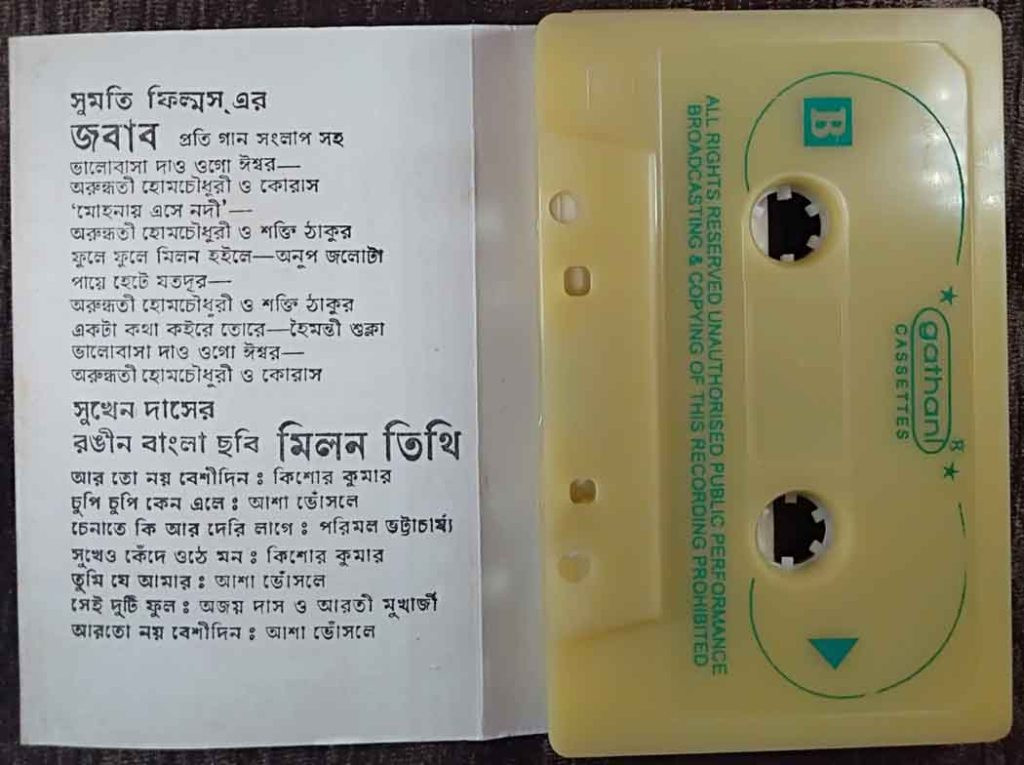 সুমতি ফিল্মস্ এর
জবাব প্রতি গান সংলাপ সহ
ভালোবাসা দাও ওগো ঈশ্বর—
অরুন্ধতী হোমচৌধুরী ও কোরাস
‘মোহনায় এসে নদী’—
অরুন্ধতী হোমচৌধুরী ও শক্তি ঠাকুর
ফুলে ফুলে মিলন হইলে—অনুপ জলোটা
পায়ে হেটে যতদূর—
অরুন্ধতী হোমচৌধুরী ও শক্তি ঠাকুর
একটা কথা কইরে তোরে—হৈমন্তী শুক্লা
ভালোবাসা দাও ওগো ঈশ্বর—
অরুন্ধতী হোমচৌধুরী ও কোরাস
সুখেন দাসের
রঙীন বাংলা ছবি মিলন তিথি
আর তো নয় বেশীদিন ঃ কিশোর কুমার
চুপি চুপি কেন এলে ঃ আশা ভোঁসলে
চেনাতে কি আর দেরি লাগে ঃ পরিমল ভট্টাচার্য্য
সুখেও কেঁদে ওঠে মন ঃ কিশোর কুমার
তুমি যে আমার ঃ আশা ভোঁসলে
সেই দুটি ফুল ঃ অজয় দাস ও আরতী মুখার্জী
আরতো নয় বেশীদিন ঃ আশা ভোঁসলে
B
gathani R
CASSETTES
ALL RIGHTS RESERVED UNAUTHORISED PUBLIC PERFORMANCE
BROADCASTING & COPYING OF THIS RECORDING PROHIBITED